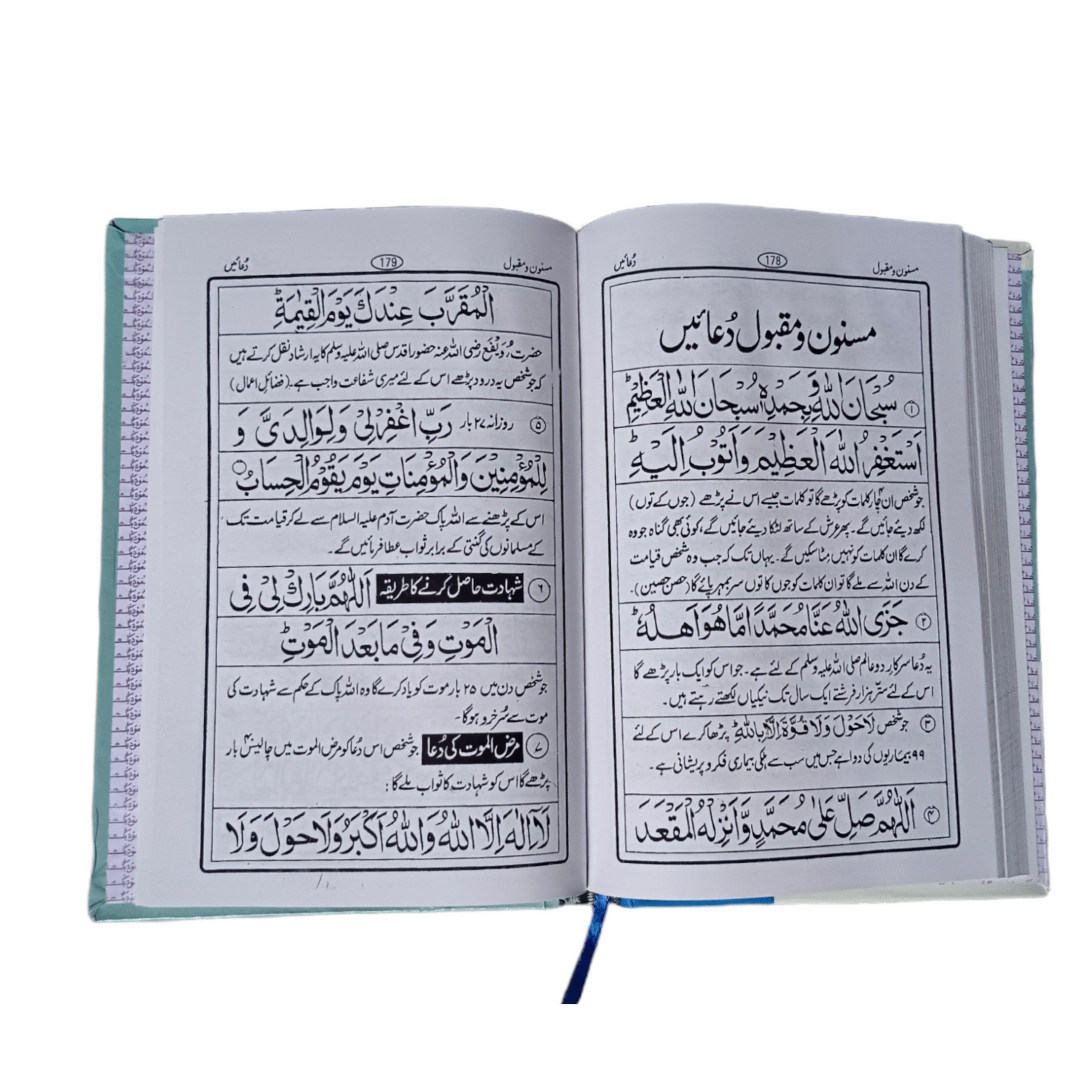 مسنون و مقبول 178 دُعائیں
مسنون و مقبول دُعائیں
① سُبْحَانَ اللّٰهِ وَبِحَمْدِهٖ سُبْحَانَ اللّٰهِ الْعَظِيْمِ ط
اَسْتَغْفِرُ اللّٰهَ الْعَظِيْمَ وَاَتُوْبُ اِلَيْهِ ط
جو شخص ان ۴ چار کلمات کو پڑھے گا تو کلمات جیسے اس نے پڑھے (جوں کے توں)
لکھ دیئے جائیں گے۔ پھر عرش کے ساتھ لٹکا دیئے جائیں گے، کوئی بھی گناہ جو وہ
کرے گا ان کلمات کو نہیں مٹا سکیں گے۔ یہاں تک کہ جب وہ شخص قیامت
کے دن اللہ سے ملے گا تو ان کلمات کو جوں کا توں سربمہر پائے گا (حصن حصین)۔
② جَزَى اللّٰهُ عَنَّا مُحَمَّدًا مَّا هُوَ اَهْلُهٗ ط
یہ دُعا سرکارِ دو عالم صلی اللہ علیہ وسلم کے لئے ہے۔ جو اس کو ایک بار پڑھے گا
اس کے لئے ستّر ہزار فرشتے ایک سال تک نیکیاں لکھتے رہتے ہیں۔
③ جو شخص لَا حَوْلَ وَلَا قُوَّةَ اِلَّا بِاللّٰهِ ط پڑھا کرے اس کے لئے
۹۹ بیماریوں کی دوا ہے جس میں سب سے ہلکی بیماری فکر و پریشانی ہے۔
④ اَللّٰهُمَّ صَلِّ عَلٰى مُحَمَّدٍ وَّاَنْزِلْهُ الْمَقْعَدَ
مسنون و مقبول 179 دُعائیں
الْمُقَرَّبَ عِنْدَكَ يَوْمَ الْقِيٰمَةِ ط
حضرت رُویفع رضی اللہ عنہ حضور اقدس صلی اللہ علیہ وسلم کا یہ ارشاد نقل کرتے ہیں
کہ جو شخص یہ درود پڑھے اس کے لئے میری شفاعت واجب ہے۔ (فضائل اعمال)
⑤ روزانہ ۲۷ بار رَبِّ اغْفِرْلِيْ وَلِوَالِدَيَّ وَ
لِلْمُؤْمِنِيْنَ وَالْمُؤْمِنَاتِ يَوْمَ يَقُوْمُ الْحِسَابُ ○
اس کے پڑھنے سے اللہ پاک حضرت آدم علیہ السلام سے لے کر قیامت تک
کے مسلمانوں کی گنتی کے برابر ثواب عطا فرمائیں گے۔
⑥ شہادت حاصل کرنے کا طریقہ اَللّٰهُمَّ بَارِكْ لِيْ فِي
الْمَوْتِ وَفِيْ مَا بَعْدَ الْمَوْتِ ط
جو شخص دن میں ۲۵ بار موت کو یاد کرے گا وہ اللہ پاک کے حکم سے شہادت کی
موت سے سُرخرو ہوگا۔
⑦ مرض الموت کی دُعا جو شخص اس دُعا کو مرض الموت میں چالیس ۴۰ بار
پڑھے گا اس کو شہادت کا ثواب ملے گا :
لَا اِلٰهَ اِلَّا اللّٰهُ وَاللّٰهُ اَكْبَرُ وَلَا حَوْلَ وَلَا